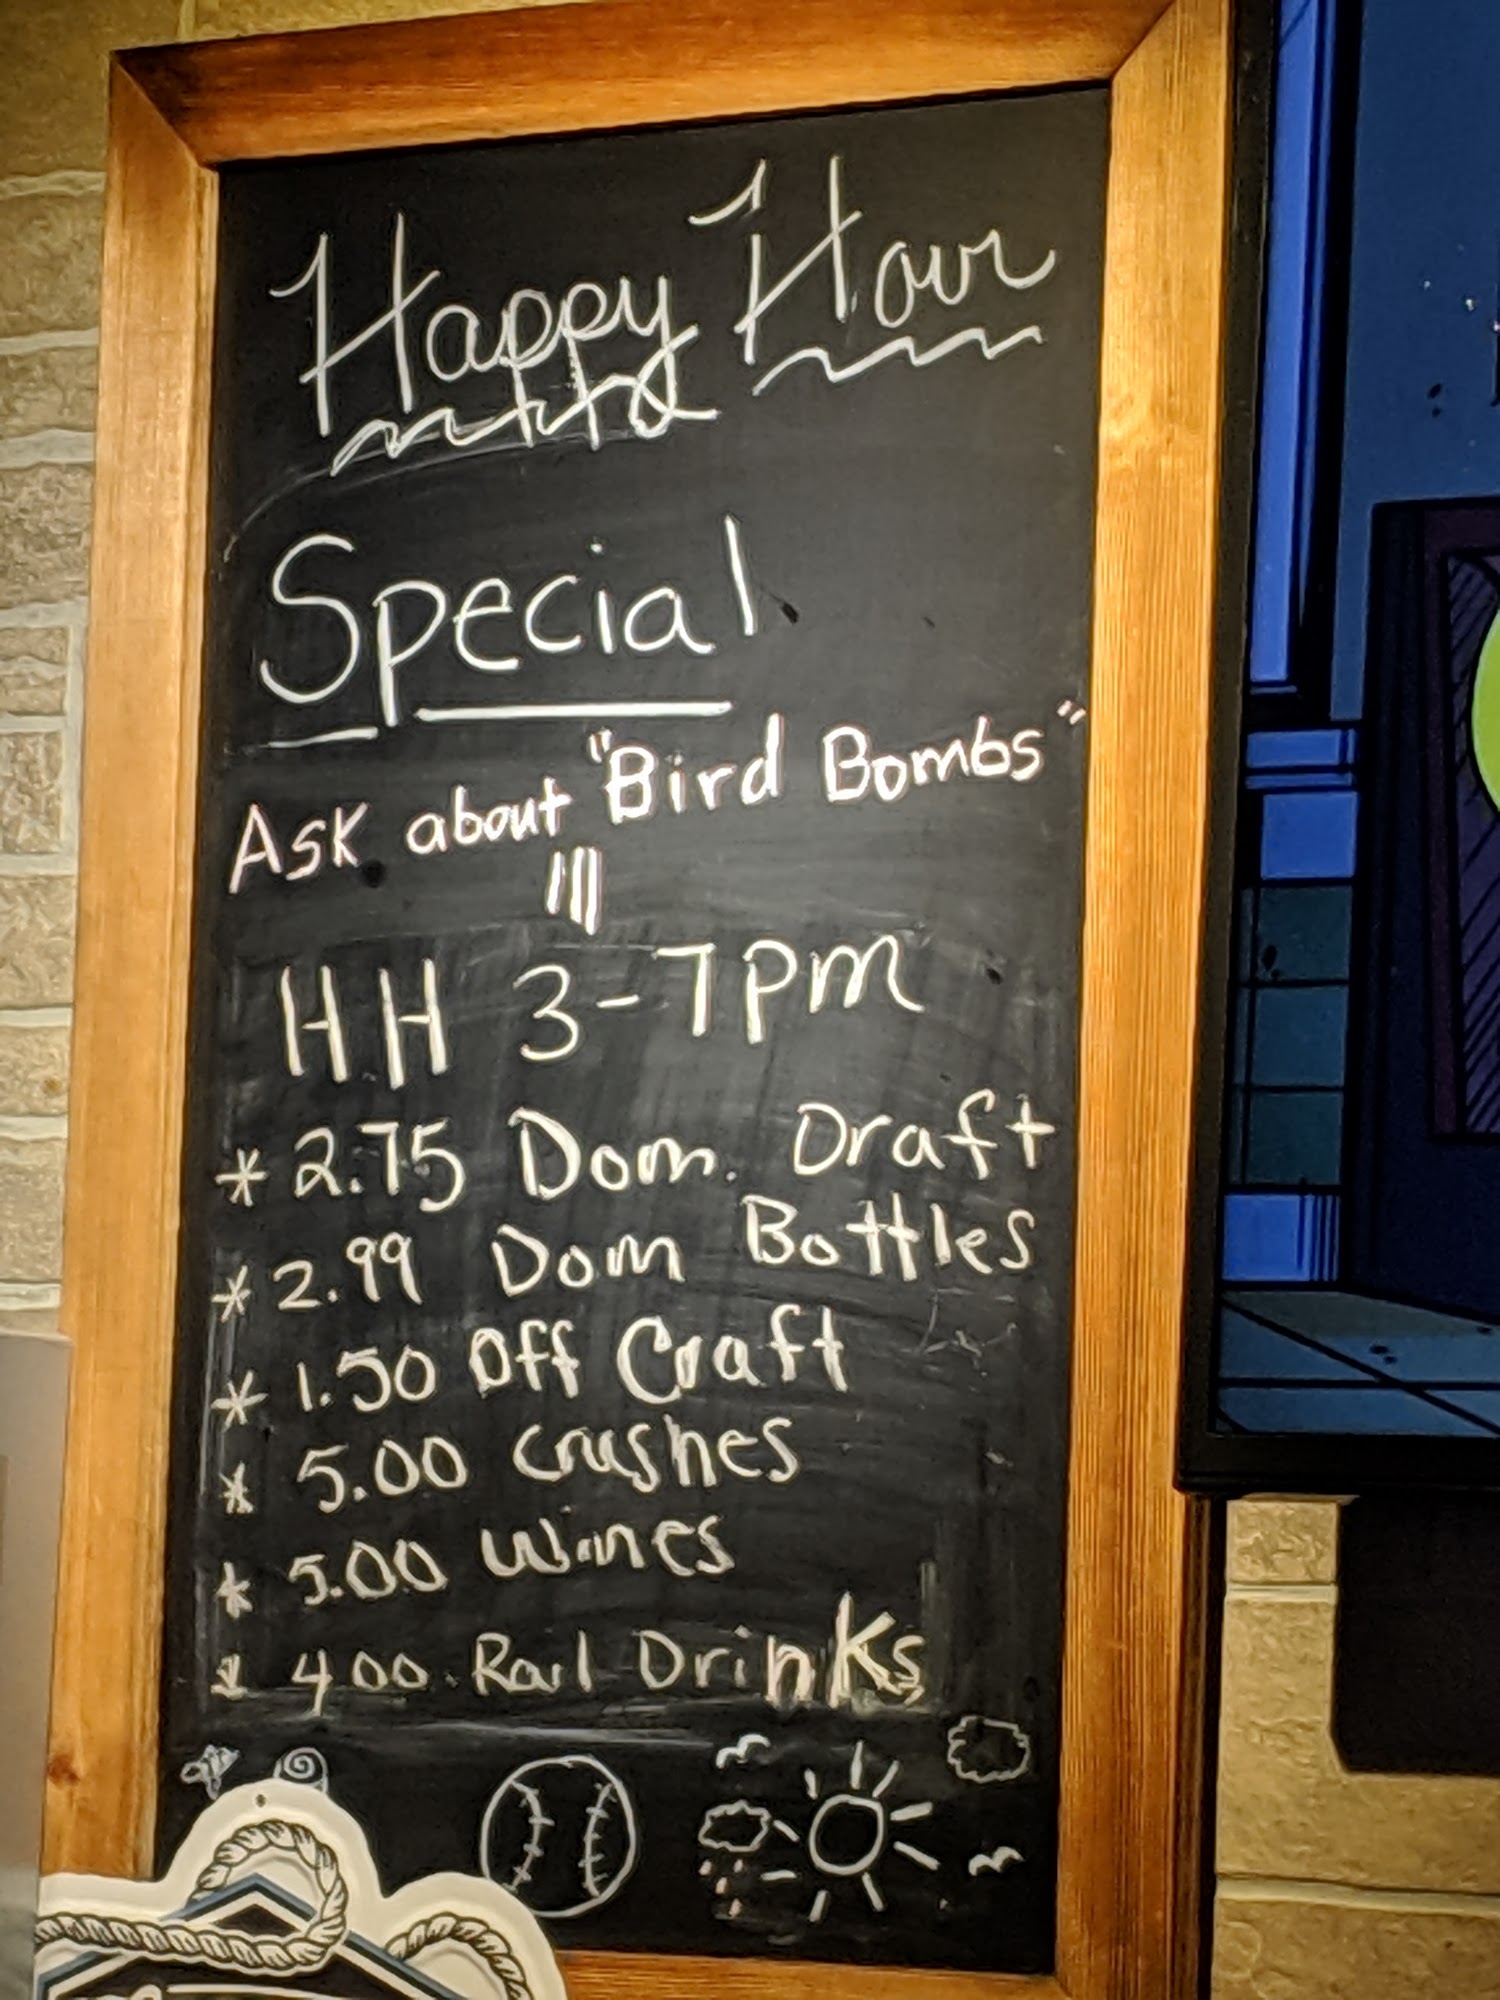 Happy Hour
Special
Ask about "Bird Bombs"
HH 3-7pm
* 2.75 Dom. Draft
* 2.99 Dom Bottles
* 1.50 Off Craft
* 5.00 Crushes
* 5.00 Wines
* 4.00 Rail Drinks